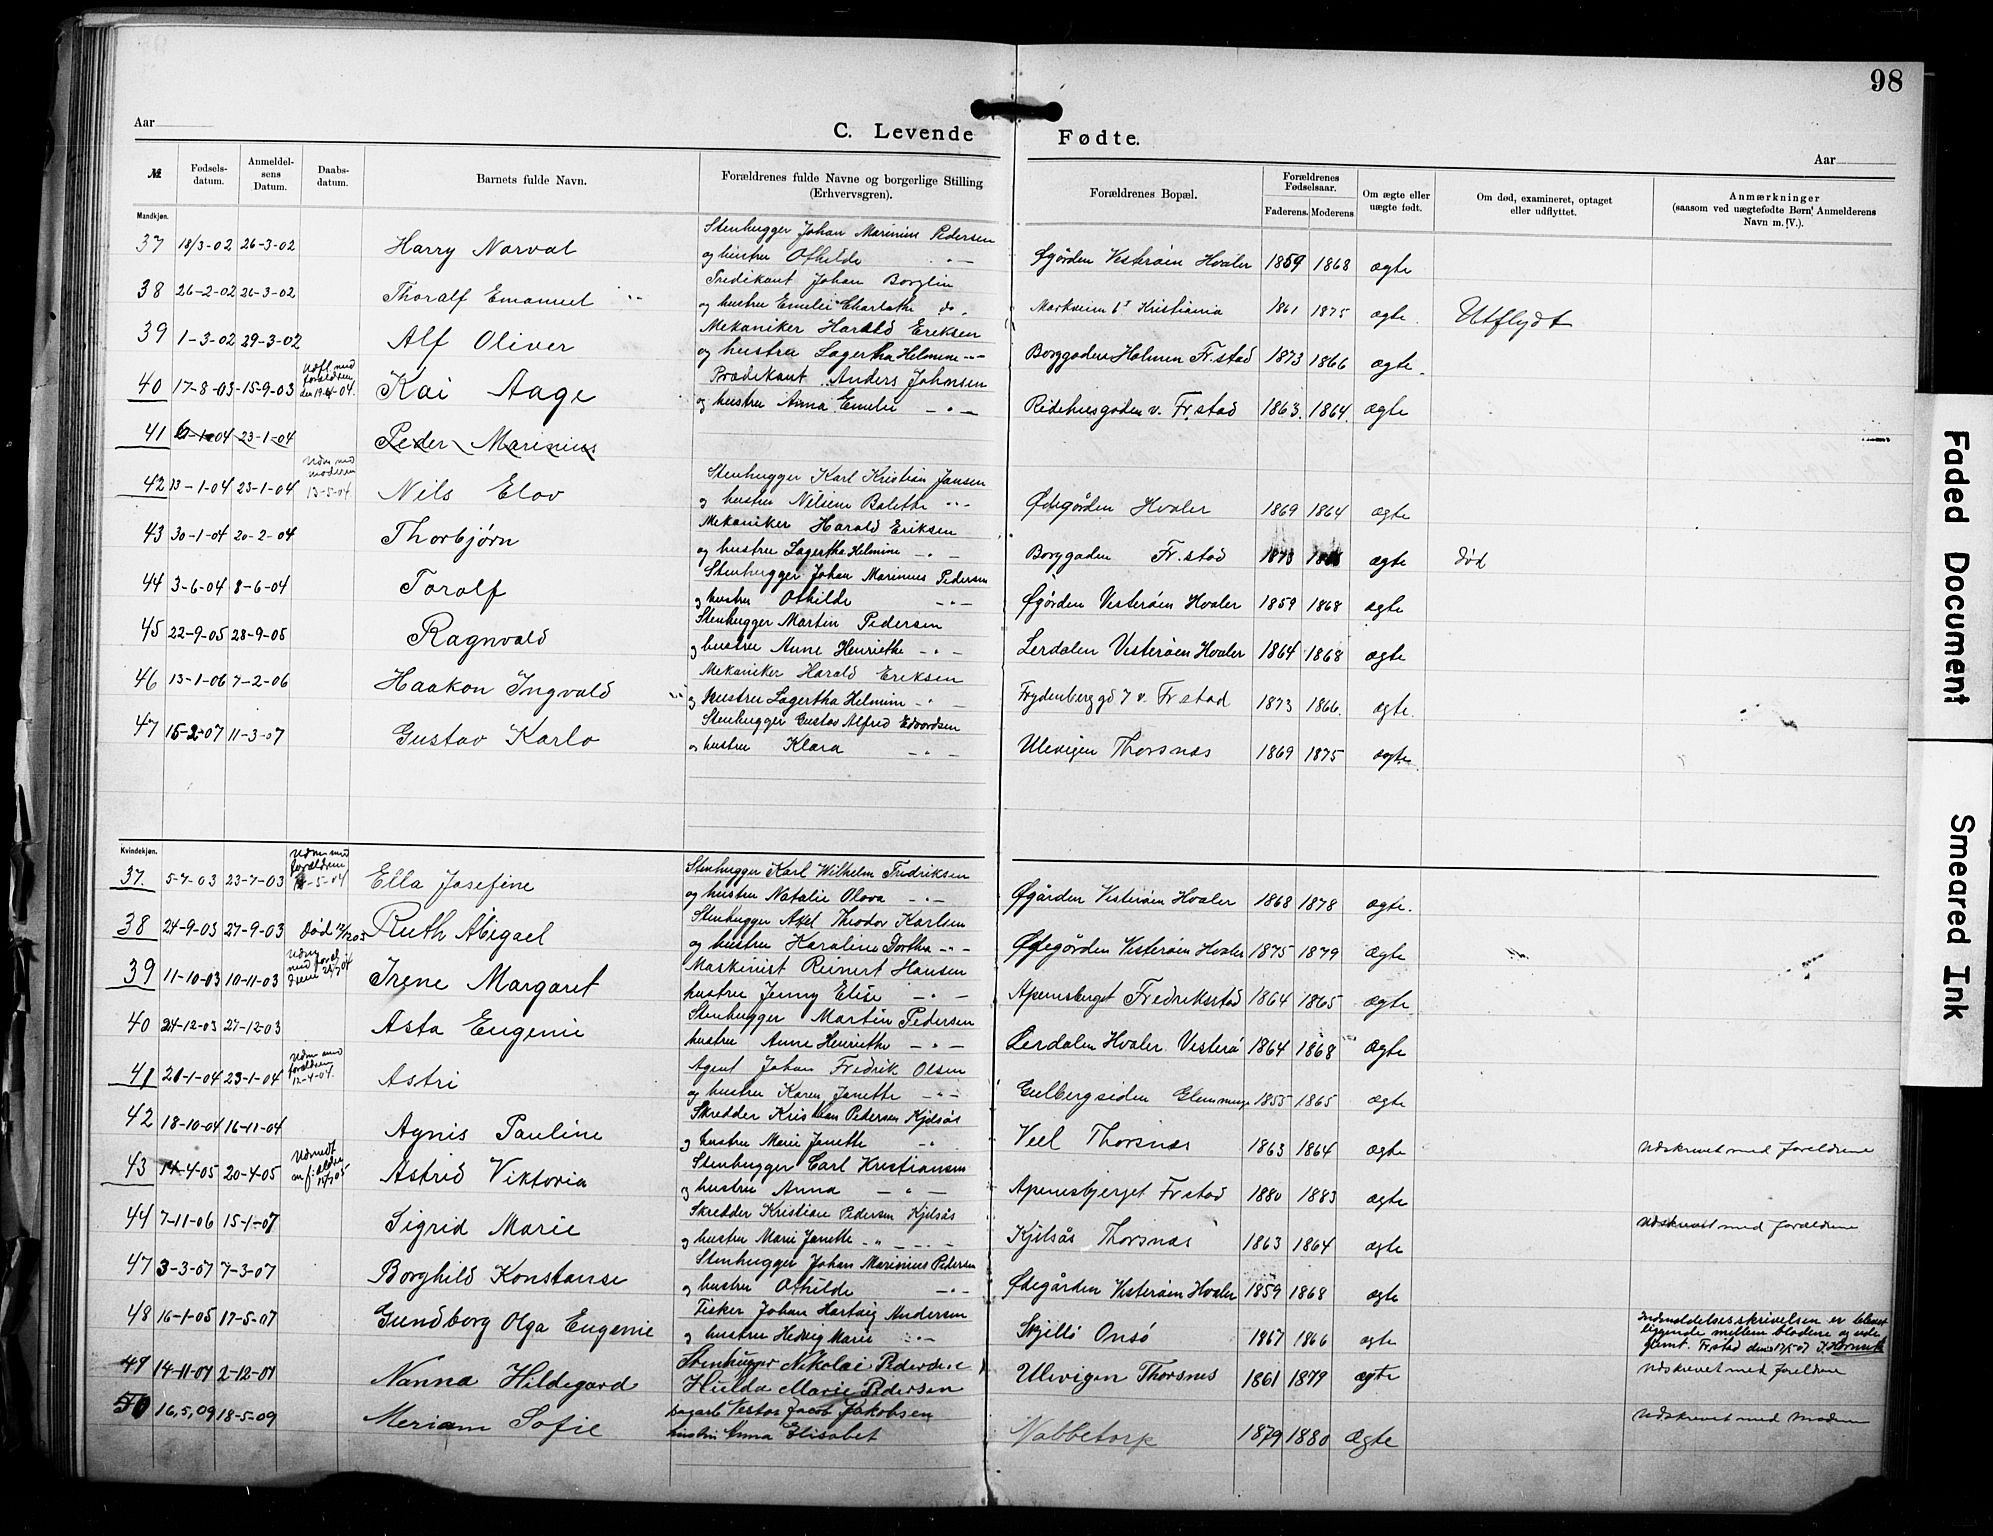 98
Aar
C. Levende Fødte.
Aar
№ Fødsels-datum. Anmeldel-sens Datum. Daabs-datum. Barnets fulde Navn. Forældrenes fulde Navne og borgerlige Stilling (Erhvervsgren). Forældrenes Bopæl. Forældrenes Fødselsaar. Faderens. Moderens Om ægte eller uægte født. Om død, examineret, optaget eller udflyttet. Anmærkninger (saasom ved uægtefødte Børn Anmelderens Navn m. V.).
Mandkjøn.
37 18/3-02 26-3-02 Harry Narval Stenhugger Johan Marinius Pedersen
og hustru Othilde Øgörden Vesterøien Hvaler 1859 1868 ægte
38 26-2-02 26-3-02 Thoralf Emanuel Predikant Johan Borglin
og hustru Emelie Charlothe do. Markveien 6 Kristiania 1861 1875 ægte. Utflydt
39 1-3-02 29-3-02 Alf Oliver Mekaniker Harald Eriksen
og hustru Lagertha Helmine Borggaden Holmen Fr.stad 1873 1866 ægte.
40 17-8-03 15-9-03 Udfl. med foreldren den 19-4-04. Kai Aage Prædikant Anders Johnsen
og hustru Anna Emelie Ridehusgaden v. Fr.stad 1863. 1864. ægte
41 6-1-04 23-1-04 Peder Marinius
42 13-1-04 23-1-04 Udm med moderen 13-5-04. Nils Elov Stenhugger Karl Kristian Jansen
og hustru Nilsine Balette Ødegörden Hvaler 1869 1864 ægte
43 30-1-04 20-2-04 Thorbjørn Mekaniker Harald Eriksen
og hustru Lagertha Helmine Borggaden Fr.stad 1873 ægte død
44 3-6-04 8-6-04 Toralf Stenhugger Johan Marinius Pedersen
og hustru Othilde Øgörden Vesterøien Hvaler 1859 1868 ægte
45 22-9-05 28-9-05 Ragnvald Stenhugger Martin Pedersen
og hustru Anne Henriethe Lerdalen Vesterøien Hvaler 1864 1868 ægte
46 13-1-06 7-2-06 Haakon Ingvald Mekaniker Harald Eriksen
og hustru Lagertha Helmine Frydenberggd 7 v. Fr stad 1873 1866. ægte.
47 15-2-07 11-3-07 Gustav Karlo Stenhugger Gustav Alfred Edvardsen
og hustru Klara Ulevigen Thorsnæs 1869 1875 ægte.
Kvindekjøn.
37. 5-7-03 23-7-03 Udm med foreldrene -5-04 Ella Josefine Stenhugger Karl Wilhelm Fredriksen
og hustru Natalie Olava Øgården Vesterøien Hvaler 1868 1878 ægte.
38 24-9-03 27-9-03 Død Ruth Abigael Stenhugger Axel Theodor Karlsen
og hustru Karoline Dorthea Ødegörden Vesterøien Hvaler 1875 1879 ægte
39 11-10-03 10-11-03 Irene Margaret Maskinist Reinert Hansen
hustru Jenny Elise Apenesberget Fredrikstad 1864 1865 ægte
40 24-12-03 27-12-03 Asta Eugenie Stenhugger Martin Pedersen
hustru Anne Henriethe Lerdalen Hvaler Vesterø 1864 1868 ægte
41 21-1-04 23-1-04 Udm med foreldren 12-4-07. Astri Agent Johan Fredrik Olsen
og hustru Karen Janette Gulbergsiden Glemminge 1855 1865 ægte
42 18-10-04 16-11-04 Agnis Pauline Skredder Kristian Pedersen Kjølsös
og hustru Marie Janette Veel Thorsnæs 1863 1864 ægte Udskrevet med foreldrene
43 14-4-05 20-4-05 Astrid Viktoria Stenhugger Carl Kristiansen
og hustru Anna Apenesbjerget Fr stad 1880 1883 ægte
44 7-11-06 15-1-07 Sigrid Marie Skredder Kristian Pedersen Kjølsös
og hustru Marie Janette Kjølsås Thorsnæs 1863 1864 ægte Udskrevet med foreldrene
47 3-3-07 7-3-07 Borghild Konstanse Stenhugger Johan Marinius Pedersen
og hustru Othilde Ødegården Vesterøien Hvaler 1859 1868 ægte
48 16-1-05 17-5-07 Gundborg Olga Eugenie Fisker Johan Hartvig Andersen
og hustru Hedvig Marie Skjellö Onsö 1867 1866 ægte Indmeldelsesskrivelsen er blevet liggende mellem bladene og ude glemt. Fr.stad den
49 14-11-07 2-12-07 Nanna Hildegard Stenhugger Nikolai Pedersen
Hulda Marie Pedersen Ulevigen Thorsnes 1861 1879 ægte Udskrevet med foreldrene
50 16,5,09 18-5-09 Meriam Sofie Jacob Jakobsen
hustru Anna Elisabet Nabbetorp 1879 1880 Ægte Udskrevet med Moderen
Faded Document
Smeared Ink